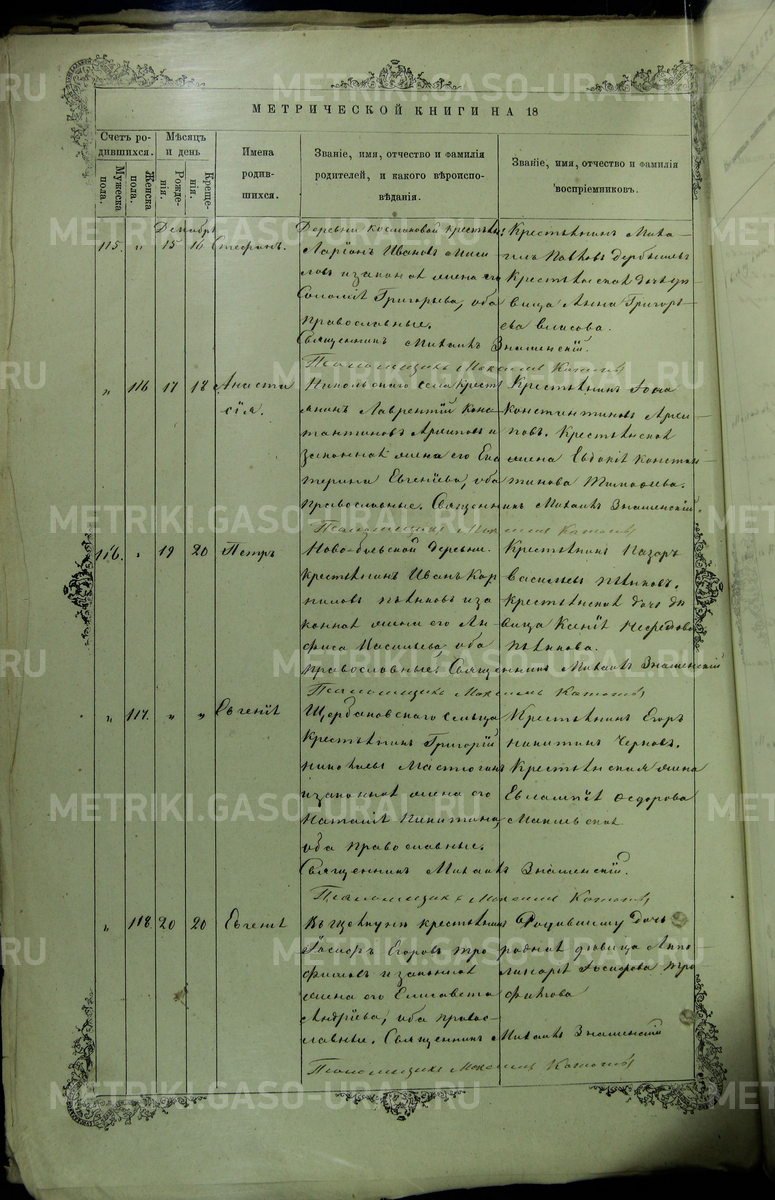 МЕТРИЧЕСКОЙ КНИГИ НА 18
Счетъ ро-
дившихся.
Мужеска пола.
Женска пола.
Мѣсяцъ
и день
Рожде-
нія.
Креще-
нія.
Имена
родив-
шихся.
Званіе, имя, отчество и фамилія
родителей, и какого вѣроиспо-
вѣданія.
Званіе, имя, отчество и фамилія
воспріемниковъ.
Декабрь
115. " 15 16 Стефанъ.
Деревни Космаковой крестьян:
Ларіонъ Ивановъ
и законная жена его
Соломія Григорьева, оба
православные.
Священникъ Михаилъ Знаменскій.
Псаломщикъ Максимъ
Крестьянинъ Миха-
илъ Павловъ
Крестьянская дочь дѣ-
вица Анна Григорь-
ева Власова.
" 116 17 18 Анаста
сія.
Никольскаго села Крест
янинъ Лаврентій Конс-
тантиновъ Архиповъ и
законная жена его Ека
терина Евгеніева, оба
православные. Священникъ Михаилъ Знаменскій.
Псаломщикъ Максимъ
Крестьянинъ
Константиновъ Архи-
повъ. Крестьянская
жена Евдокія Констан
тинова Тимофеева.
116. " 19 20 Петръ
деревни.
Крестьянинъ Иванъ Кор
ниловъ Пьянковъ и за
конная жена его Ан
фиса Васильева, оба
православные. Священникъ Михаилъ Знаменскій
Псаломщикъ Максимъ
Крестьянинъ Назаръ
Васильевъ Пьянковъ.
Крестьянская дочь дѣ
вица Ксенія
Пьянкова.
" 117. " " Евгенія
Щербаковскаго сельца
Крестьянинъ Григорій
и законная жена его
Наталія Никитина,
оба православные.
Священникъ Михаилъ Знаменскій.
Псаломщикъ Максимъ
Крестьянинъ Егоръ
Никитинъ Черновъ.
Крестьянская жена
Евлампія Федорова
" 118. 20 20 Евгенія
крестьянинъ
Іосифъ Егоровъ Тро
фимовъ и законная
жена его Елисавета
Андріева, оба правос-
лавные. Священникъ Михаилъ Знаменскій
Псаломщикъ Максимъ
Родившему дочь
родная дѣвица Апо-
линарія Іосифова Тро
фимова
METRIKI.GASO-URAL.RU